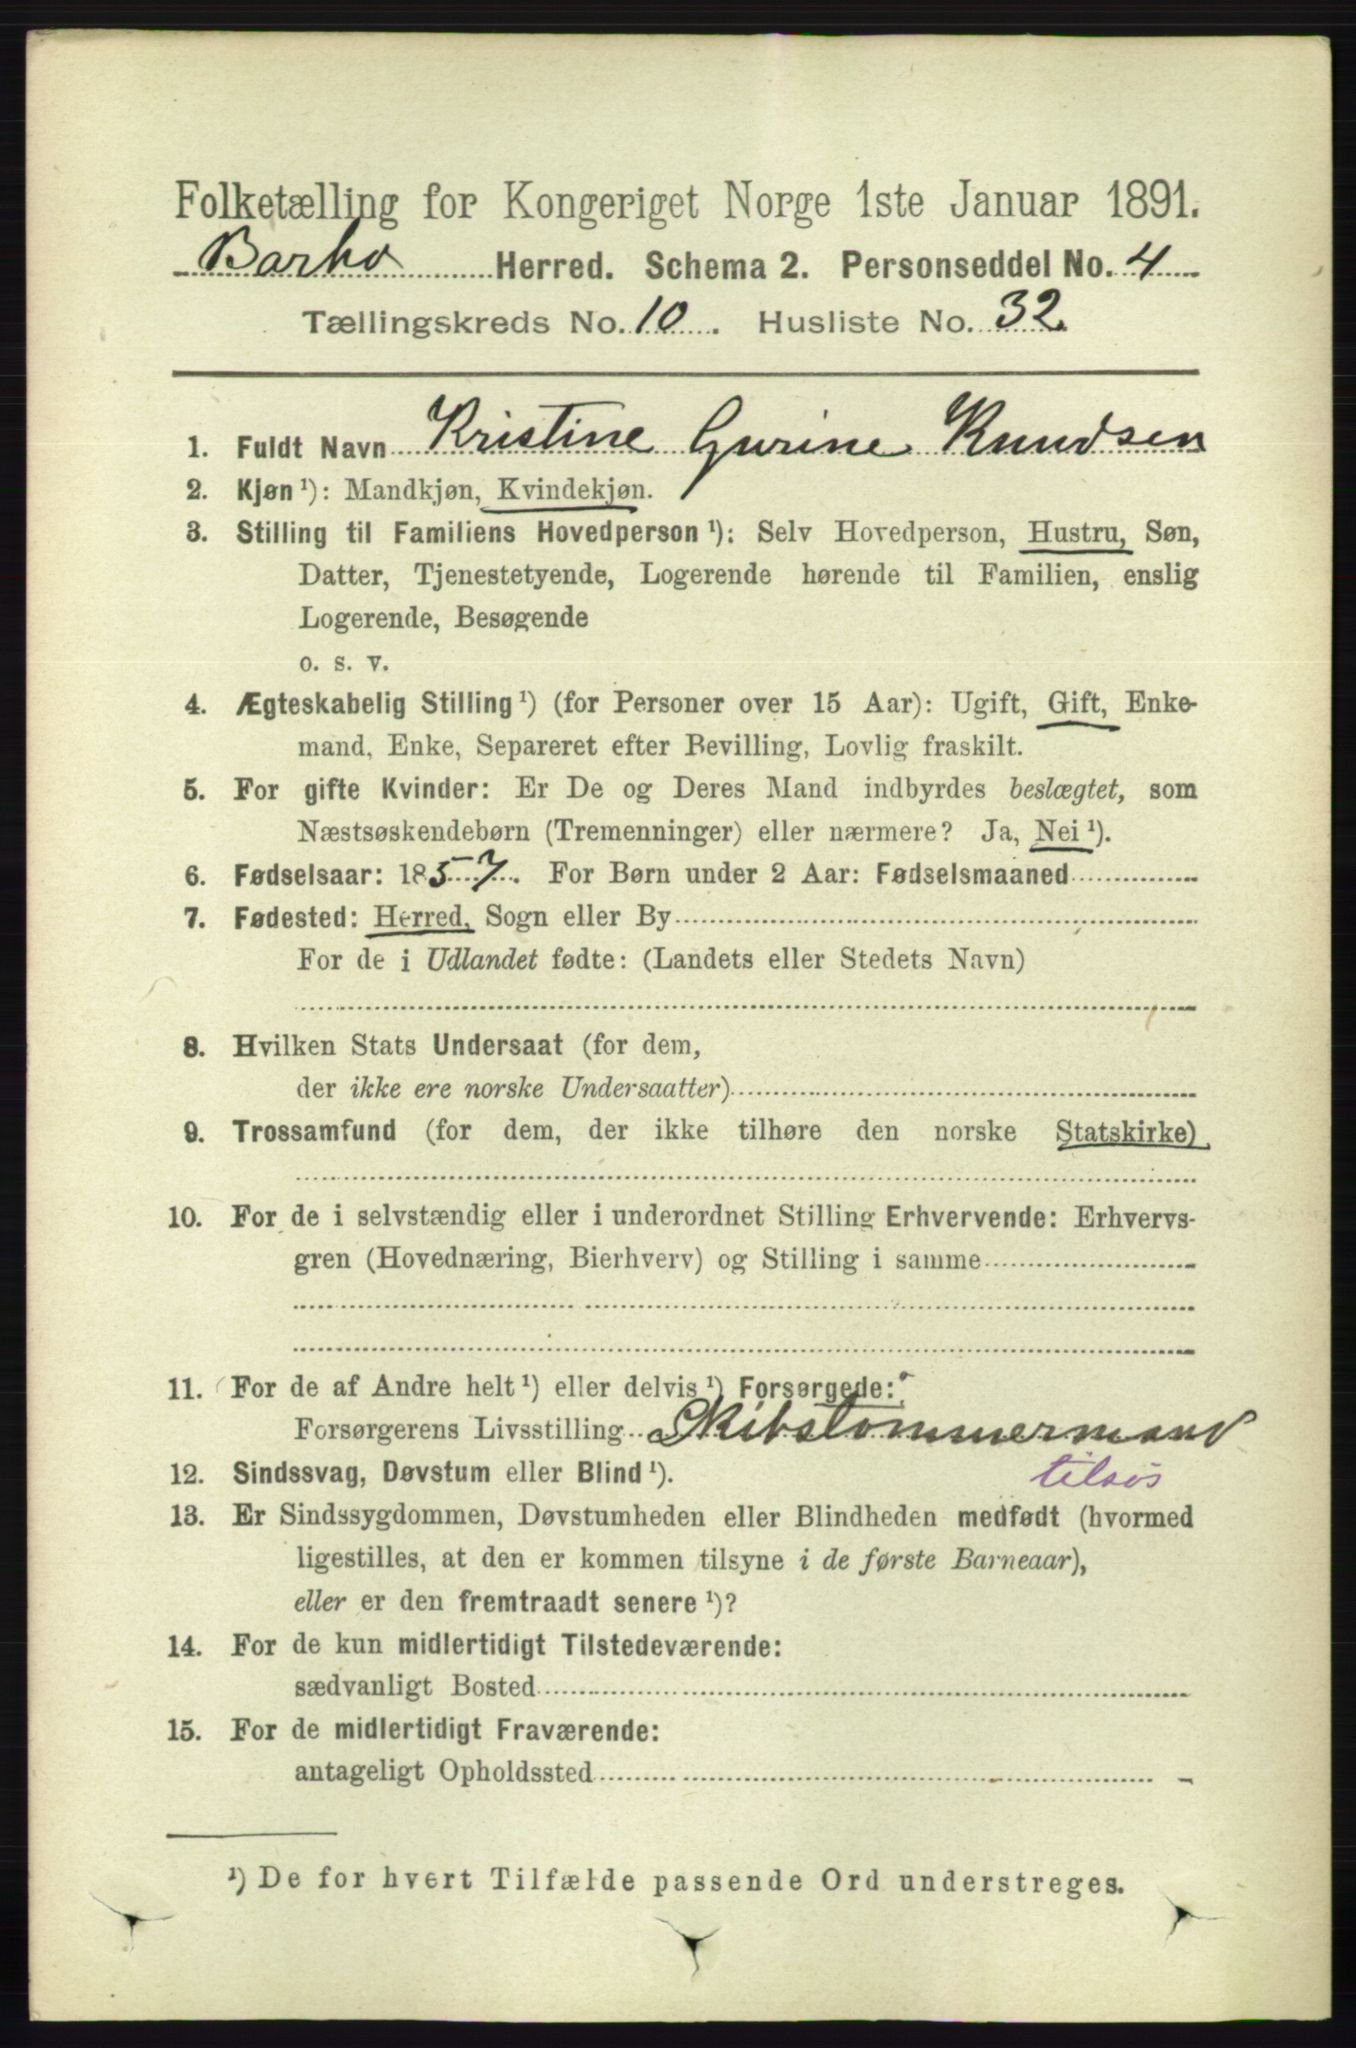 Folketælling for Kongeriget Norge 1ste Januar 1891.
Barbo Herred. Schema 2. Personseddel No. 4
Tællingskreds No. 10. Husliste No. 32.
1. Fuldt Navn Kristine Gurine Knudsen
2. Kjøn ¹): Mandkjøn, Kvindekjøn.
3. Stilling til Familiens Hovedperson ¹): Selv Hovedperson, Hustru, Søn,
Datter, Tjenestetyende, Logerende hørende til Familien, enslig
Logerende, Besøgende
o. s. v.
4. Ægteskabelig Stilling ¹) (for Personer over 15 Aar): Ugift, Gift, Enke-
mand, Enke, Separeret efter Bevilling, Lovlig fraskilt.
5. For gifte Kvinder: Er De og Deres Mand indbyrdes beslægtet, som
Næstsøskendebørn (Tremenninger) eller nærmere? Ja, Nei ¹).
6. Fødselsaar: 1857. For Børn under 2 Aar: Fødselsmaaned
7. Fødested: Herred, Sogn eller By
For de i Udlandet fødte: (Landets eller Stedets Navn)
8. Hvilken Stats Undersaat (for dem,
der ikke ere norske Undersaatter)
9. Trossamfund (for dem, der ikke tilhøre den norske Statskirke)
10. For de i selvstændig eller i underordnet Stilling Erhvervende: Erhvervs-
gren (Hovednæring, Bierhverv) og Stilling i samme
11. For de af Andre helt ¹) eller delvis ¹) Forsørgede:
Forsørgerens Livsstilling Skibstømmermand
12. Sindssvag, Døvstum eller Blind ¹). tilsøs
13. Er Sindssygdommen, Døvstumheden eller Blindheden medfødt (hvormed
ligestilles, at den er kommen tilsyne i de første Barneaar),
eller er den fremtraadt senere ¹)?
14. For de kun midlertidigt Tilstedeværende:
sædvanligt Bosted
15. For de midlertidigt Fraværende:
antageligt Opholdssted
¹) De for hvert Tilfælde passende Ord understreges.